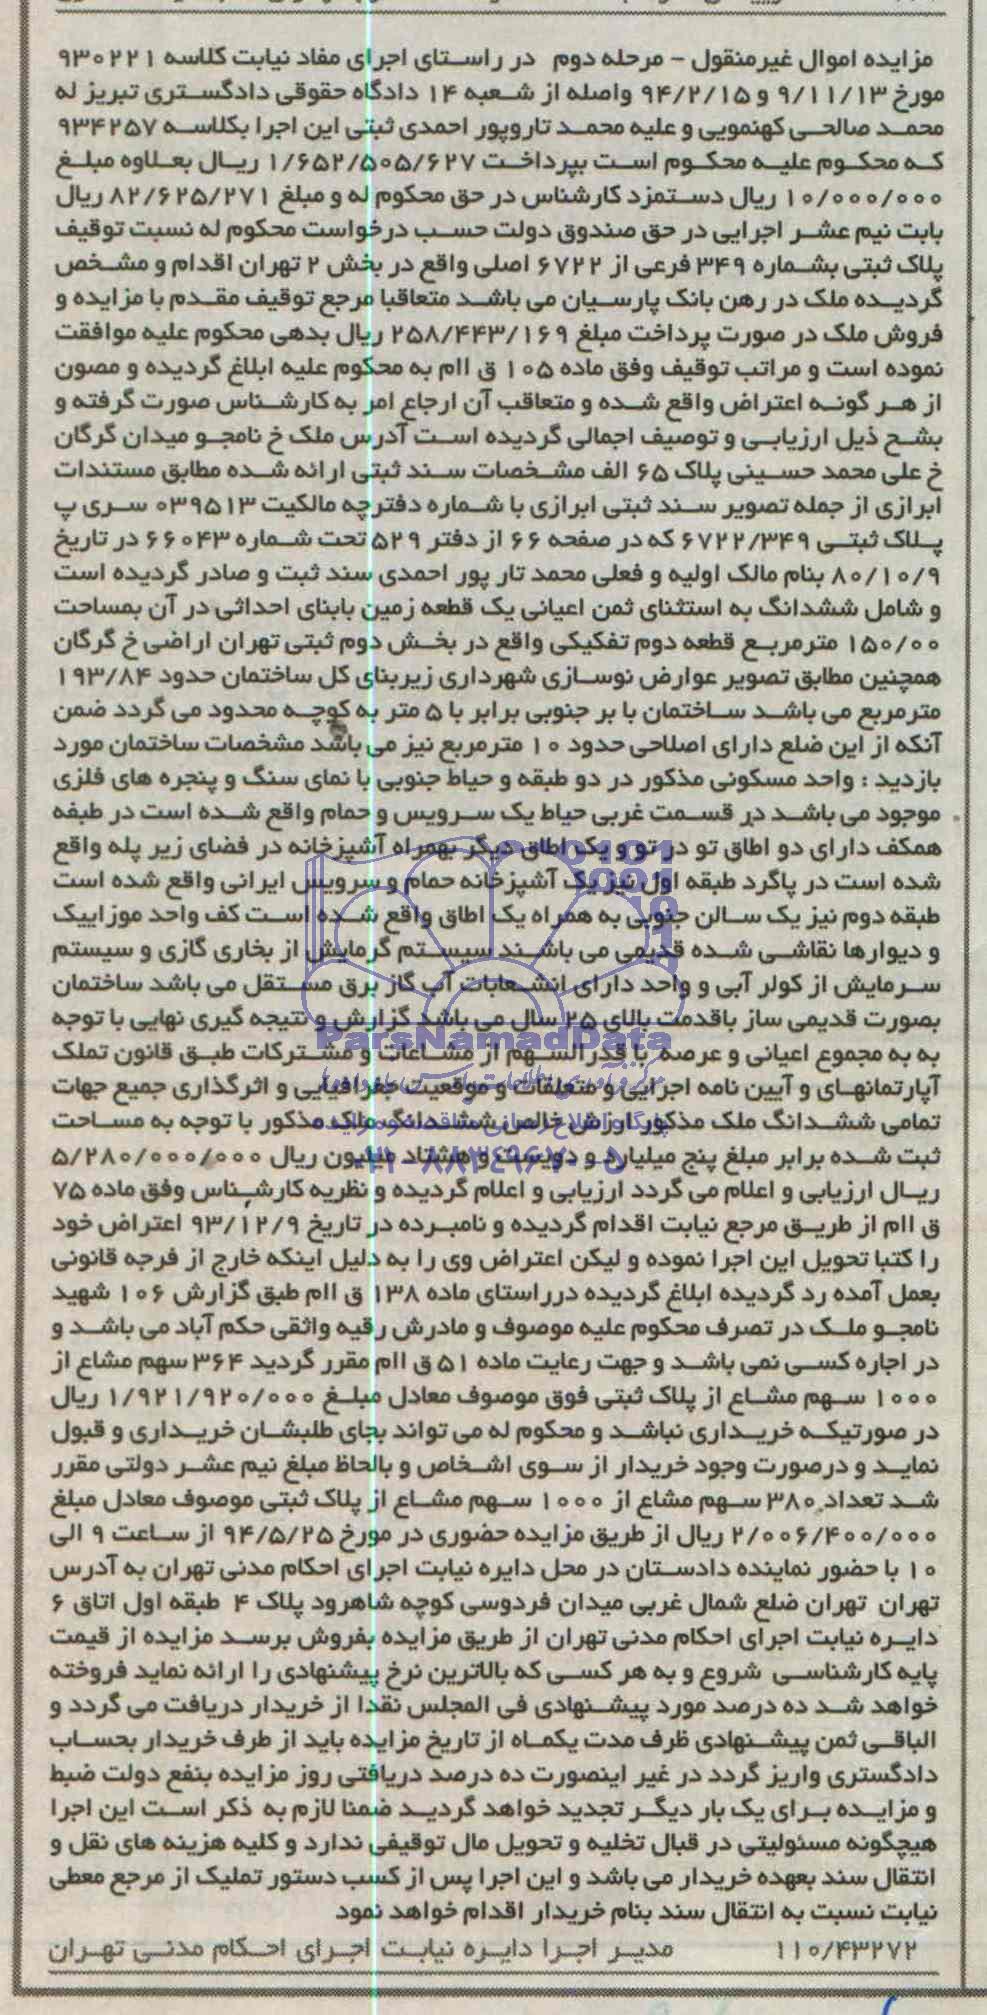 مزایده اموال غیرمنقول - مرحله دوم در راستای اجرای مفاد نیابت کلاسه ۹۳۰۲۲۱
مورخ ۹/۱۱/۱۳ و ۹۴/۲/۱۵ واصله از شعبه ۱۴ دادگاه حقوقی دادگستری تبریز له
محمد صالحی کهنمویی و علیه محمد تاروپور احمدی ثبتی این اجرا بکلاسه ۹۳۴۲۵۷
که محکوم علیه محکوم است بپرداخت ۱/۶۵۲/۵۰۵/۶۲۷ ریال بعلاوه مبلغ
۱۰/۰۰۰/۰۰۰ ریال دستمزد کارشناس در حق محکوم له و مبلغ ۸۲/۶۲۵/۲۷۱ ریال
بابت نیم عشر اجرایی در حق صندوق دولت حسب درخواست محکوم له نسبت توقیف
پلاک ثبتی بشماره ۳۴۹ فرعی از ۶۷۲۲ اصلی واقع در بخش ۲ تهران اقدام و مشخص
گردیده ملک در رهن بانک پارسیان می باشد متعاقبا مرجع توقیف مقدم با مزایده و
فروش ملک در صورت پرداخت مبلغ ۲۵۸/۴۴۳/۱۶۹ ریال بدهی محکوم علیه موافقت
نموده است و مراتب توقیف وفق ماده ۱۰۵ ق اام به محکوم علیه ابلاغ گردیده و مصون
از هر گونه اعتراض واقع شده و متعاقب آن ارجاع امر به کارشناس صورت گرفته و
بشح ذیل ارزیابی و توصیف اجمالی گردیده است آدرس ملک خ نامجو میدان گرگان
خ علی محمد حسینی پلاک ۶۵ الف مشخصات سند ثبتی ارائه شده مطابق مستندات
ابرازی از جمله تصویر سند ثبتی ابرازی با شماره دفترچه مالکیت ۰۳۹۵۱۳ سری پ
پلاک ثبتی ۶۷۲۲/۳۴۹ که در صفحه ۶۶ از دفتر ۵۲۹ تحت شماره ۶۶۰۴۳ در تاریخ
۸۰/۱۰/۹ بنام مالک اولیه و فعلی محمد تار پور احمدی سند ثبت و صادر گردیده است
و شامل ششدانگ به استثنای ثمن اعیانی یک قطعه زمین بابنای احداثی در آن بمساحت
۱۵۰/۰۰ مترمربع قطعه دوم تفکیکی واقع در بخش دوم ثبتی تهران اراضی خ گرگان
همچنین مطابق تصویر عوارض نوسازی شهرداری زیربنای کل ساختمان حدود ۱۹۳/۸۴
مترمربع می باشد ساختمان با بر جنوبی برابر با ۵ متر به کوچه محدود می گردد ضمن
آنکه از این ضلع دارای اصلاحی حدود ۱۰ مترمربع نیز می باشد مشخصات ساختمان مورد
بازدید : واحد مسکونی مذکور در دو طبقه و حیاط جنوبی با نمای سنگ و پنجره های فلزی
موجود می باشد در قسمت غربی حیاط یک سرویس و حمام واقع شده است در طبقه
همکف دارای دو اطاق تو در تو و یک اطاق دیگر بهمراه آشپزخانه در فضای زیر پله واقع
شده است در پاگرد طبقه اول نیز یک آشپزخانه حمام و سرویس ایرانی واقع شده است
طبقه دوم نیز یک سالن جنوبی به همراه یک اطاق واقع شده است کف واحد موزاییک
و دیوارها نقاشی شده قدیمی می باشند سیستم گرمایش از بخاری گازی و سیستم
سرمایش از کولر آبی و واحد دارای انشعابات آب گاز برق مستقل می باشد ساختمان
بصورت قدیمی ساز باقدمت بالای ۲۵ سال می باشد گزارش و نتیجه گیری نهایی با توجه
ParsNamadData
به به مجموع اعیانی و عرصه با قدرالسهم از مشاعات و مشترکات طبق قانون تملک
آپارتمانهای و آیین نامه اجرایی و متعلقات و موقعیت جغرافیایی و اثرگذاری جمیع جهات
تمامی ششدانگ ملک مذکور ارزش خالص ششدانگ ملک مذکور با توجه به مساحت
ثبت شده برابر مبلغ پنج میلیارد و دویست و هشتاد میلیون ریال ۵/۲۸۰/۰۰۰/۰۰۰
۰۲۱-۸۸۳۴۹۶۷۰-۵
ریال ارزیابی و اعلام می گردد ارزیابی و اعلام گردیده و نظریه کارشناس وفق ماده ۷۵
ق اام از طریق مرجع نیابت اقدام گردیده و نامبرده در تاریخ ۹۳/۱۲/۹ اعتراض خود
را کتبا تحویل این اجرا نموده و لیکن اعتراض وی را به دلیل اینکه خارج از فرجه قانونی
بعمل آمده رد گردیده ابلاغ گردیده درراستای ماده ۱۳۸ ق اام طبق گزارش ۱۰۶ شهید
نامجو ملک در تصرف محکوم علیه موصوف و مادرش رقیه واثقی حکم آباد می باشد و
در اجاره کسی نمی باشد و جهت رعایت ماده ۵۱ ق اام مقرر گردید ۳۶۴ سهم مشاع از
۱۰۰۰ سهم مشاع از پلاک ثبتی فوق موصوف معادل مبلغ ۱/۹۲۱/۹۲۰/۰۰۰ ریال
در صورتیکه خریداری نباشد و محکوم له می تواند بجای طلبشان خریداری و قبول
نماید و درصورت وجود خریدار از سوی اشخاص و بالحاظ مبلغ نیم عشر دولتی مقرر
شد تعداد ۳۸۰ سهم مشاع از ۱۰۰۰ سهم مشاع از پلاک ثبتی موصوف معادل مبلغ
۲/۰۰۶/۴۰۰/۰۰۰ ریال از طریق مزایده حضوری در مورخ ۹۴/۵/۲۵ از ساعت ۹ الی
۱۰ با حضور نماینده دادستان در محل دایره نیابت اجرای احکام مدنی تهران به آدرس
تهران تهران ضلع شمال غربی میدان فردوسی کوچه شاهرود پلاک ۴ طبقه اول اتاق ۶
دایره نیابت اجرای احکام مدنی تهران از طریق مزایده بفروش برسد مزایده از قیمت
پایه کارشناسی شروع و به هر کسی که بالاترین نرخ پیشنهادی را ارائه نماید فروخته
خواهد شد ده درصد مورد پیشنهادی فی المجلس نقدا از خریدار دریافت می گردد و
الباقی ثمن پیشنهادی ظرف مدت یکماه از تاریخ مزایده باید از طرف خریدار بحساب
دادگستری واریز گردد در غیر اینصورت ده درصد دریافتی روز مزایده بنفع دولت ضبط
و مزایده برای یک بار دیگر تجدید خواهد گردید ضمنا لازم به ذکر است این اجرا
هیچگونه مسئولیتی در قبال تخلیه و تحویل مال توقیفی ندارد و کلیه هزینه های نقل و
انتقال سند بعهده خریدار می باشد و این اجرا پس از کسب دستور تملیک از مرجع معطی
نیابت نسبت به انتقال سند بنام خریدار اقدام خواهد نمود
۱۱۰/۴۳۲۷۲ مدیر اجرا دایره نیابت اجرای احکام مدنی تهران